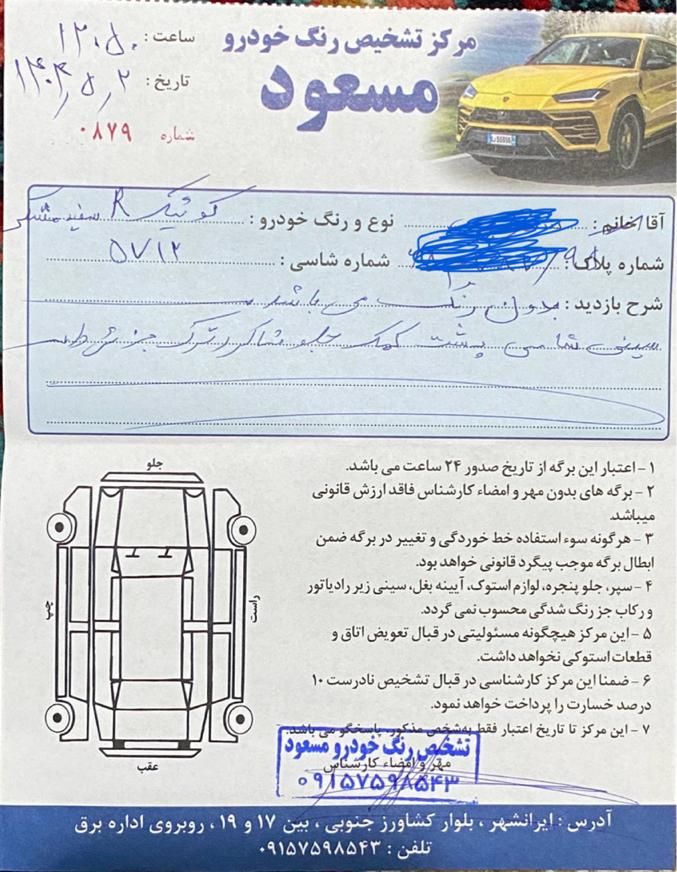 مرکز تشخیص رنگ خودرو
مسعود
ساعت : ۱۲:۵۰
تاریخ : ۱۴۰۴/۵/۲
شماره ۰۸۷۹
آقا خانم :
نوع و رنگ خودرو : کوئیک R سفید مشکی
شماره پلاک :
شماره شاسی : ۵۷۱۲
شرح بازدید : بدون رنگ می باشد
سینی شاسی پشت کمک جلو شاگرد ترک جزئی دارد
جلو
چپ
راست
عقب
۱ – اعتبار این برگه از تاریخ صدور ۲۴ ساعت می باشد.
۲ – برگه های بدون مهر و امضاء کارشناس فاقد ارزش قانونی
میباشد.
۳ – هرگونه سوء استفاده خط خوردگی و تغییر در برگه ضمن
ابطال برگه موجب پیگرد قانونی خواهد بود.
۴ – سپر، جلو پنجره، لوازم استوک، آیینه بغل، سینی زیر رادیاتور
و رکاب جز رنگ شدگی محسوب نمی گردد.
۵ – این مرکز هیچگونه مسئولیتی در قبال تعویض اتاق و
قطعات استوکی نخواهد داشت.
۶ – ضمنا این مرکز کارشناسی در قبال تشخیص نادرست ۱۰
درصد خسارت را پرداخت خواهد نمود.
۷ – این مرکز تا تاریخ اعتبار فقط به شخص مذکور، پاسخگو می باشد.
تشخیص رنگ خودرو مسعود
مهر و امضاء کارشناس
۰۹۱۵۷۵۹۸۵۴۳
آدرس : ایرانشهر ، بلوار کشاورز جنوبی ، بین ۱۷ و ۱۹ ، روبروی اداره برق
تلفن : ۰۹۱۵۷۵۹۸۵۴۳